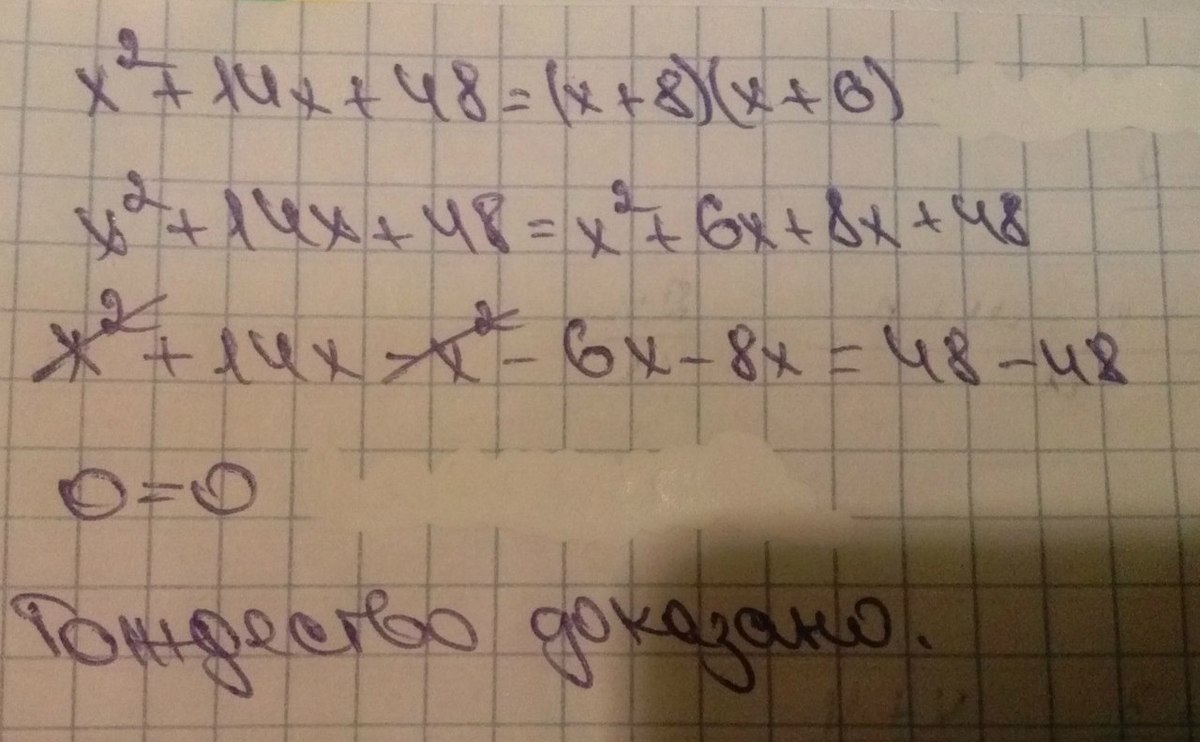 x² + 14x + 48 = (x + 8)(x + 6)
x² + 14x + 48 = x² + 6x + 8x + 48
x² + 14x - x² - 6x - 8x = 48 - 48
0 = 0
Тождество доказано.